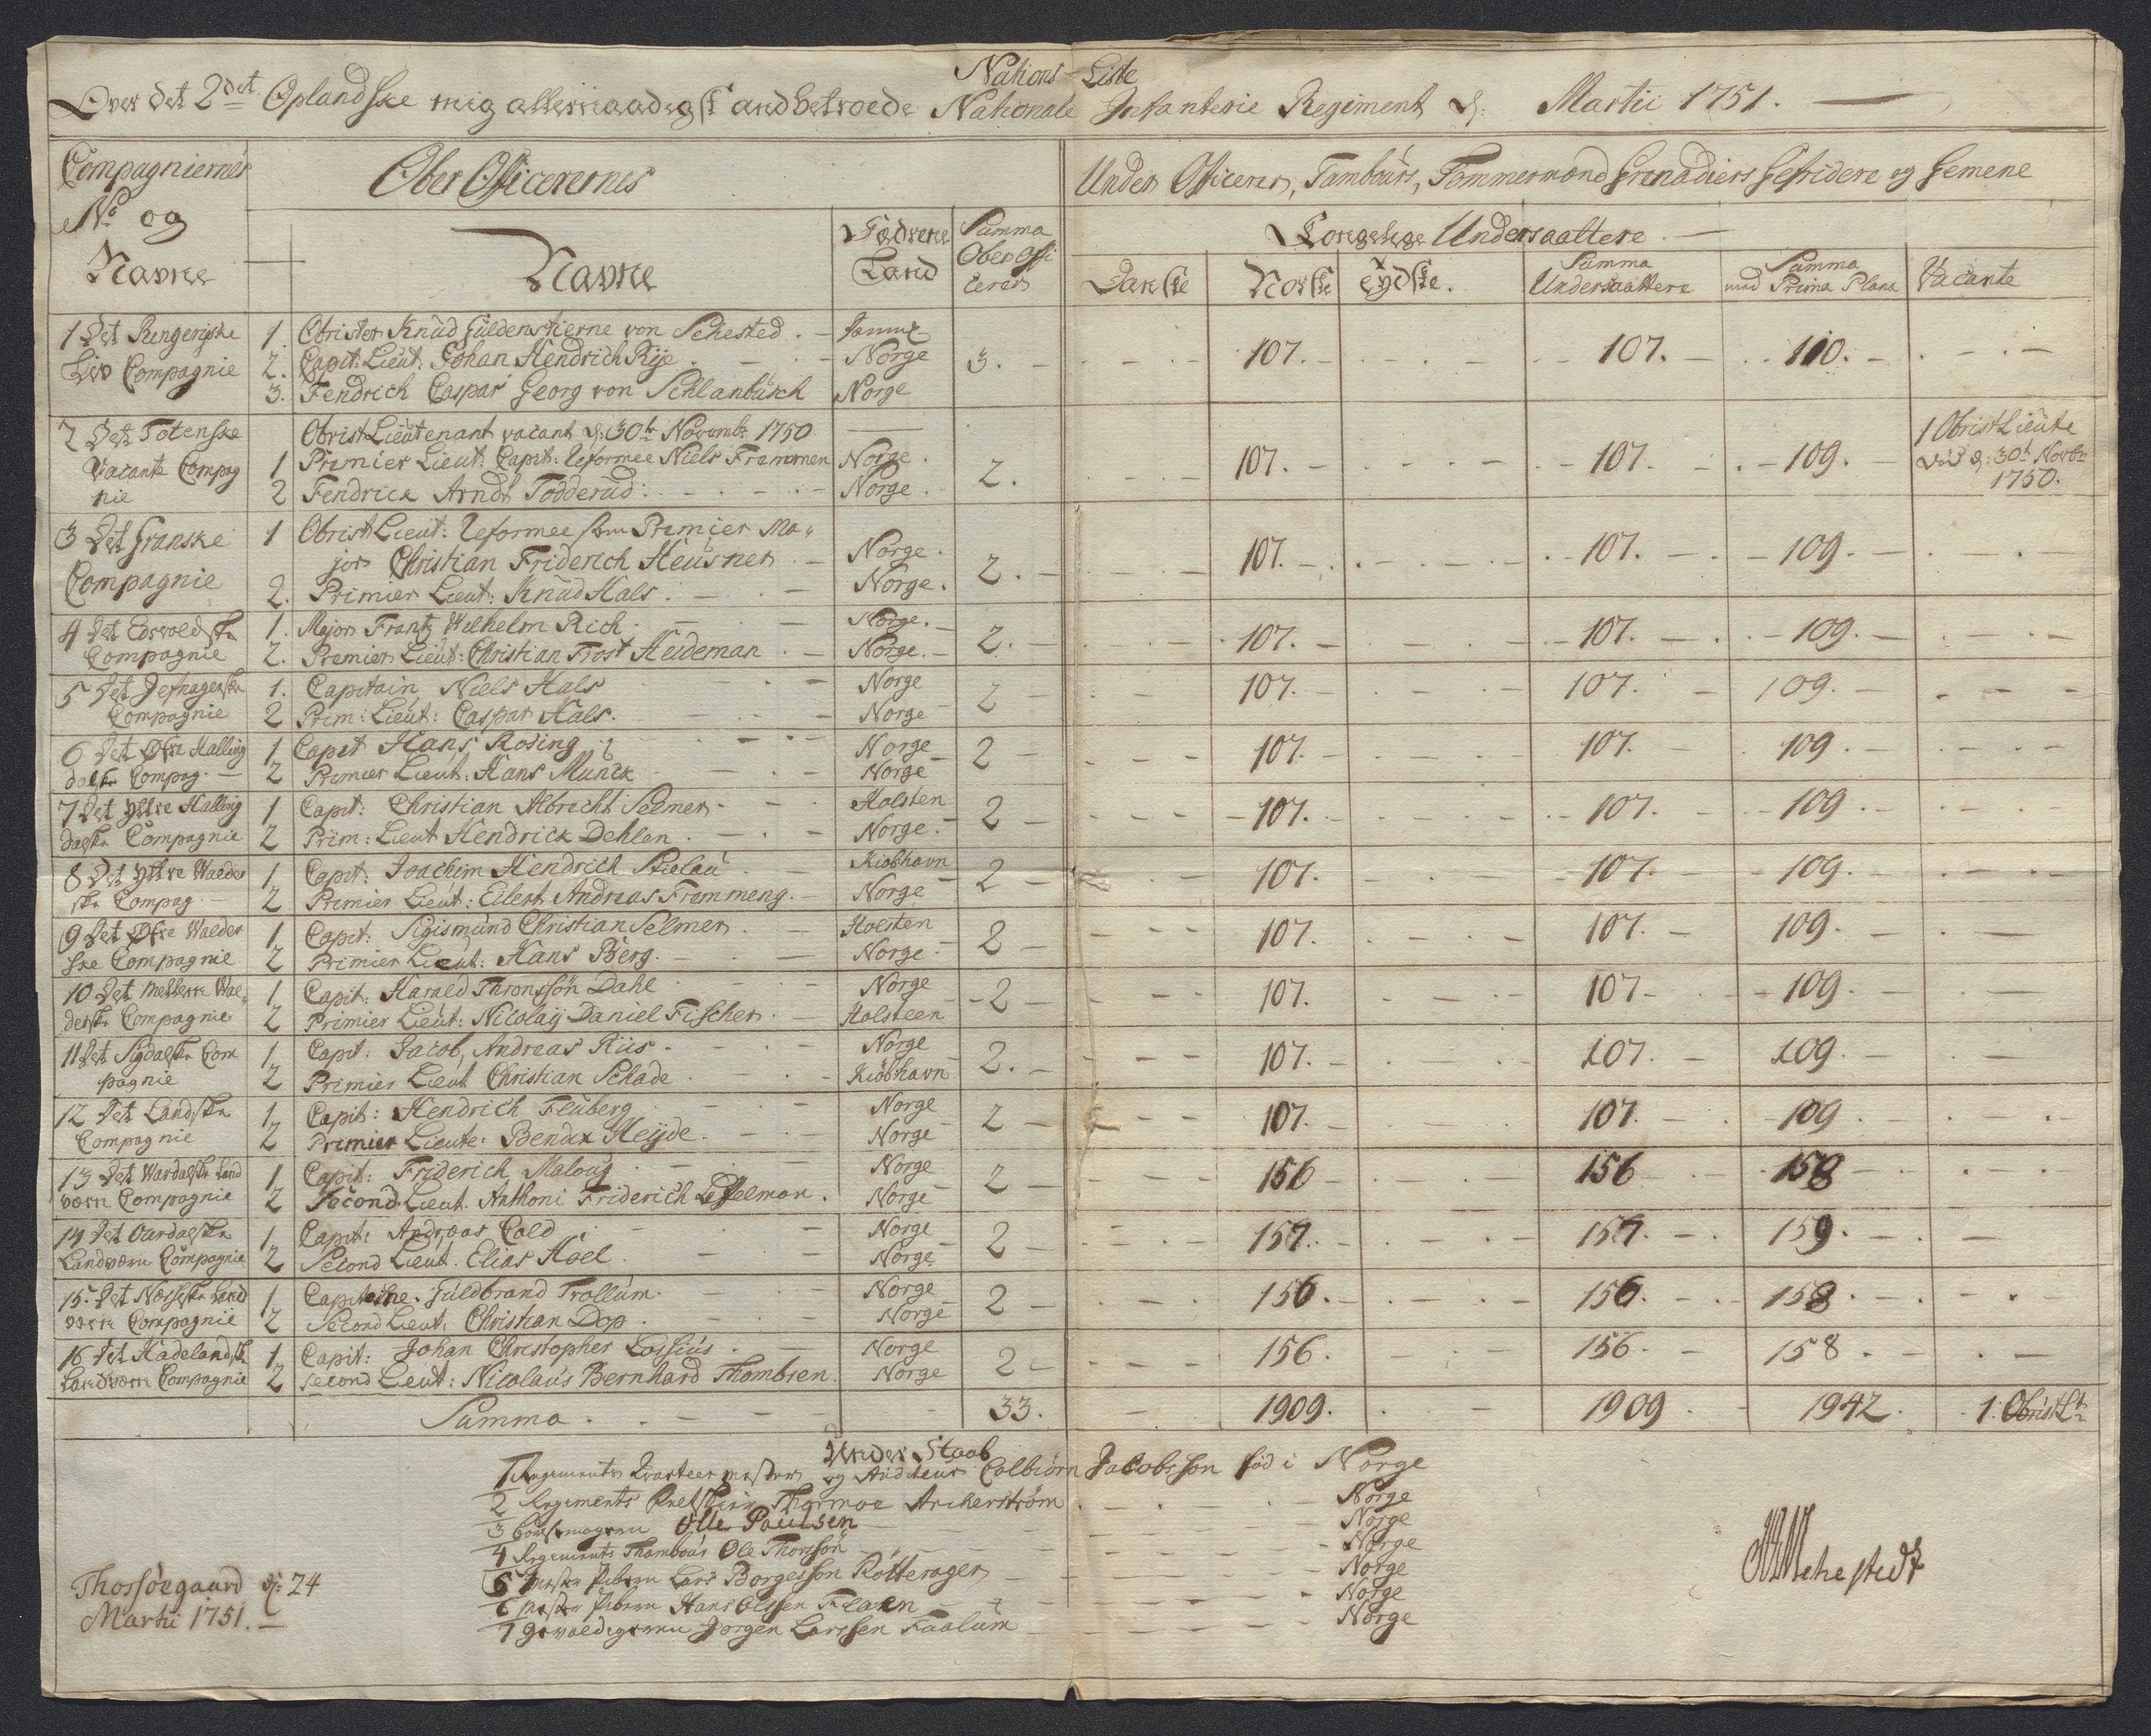 Nations Liste
Over det 2det Oplandske mig allernaadigst andbetroede Nationale Infanterie Regiment d: Martii 1751.
Compagniernes No og Navne
Ober Officerernes
Under Officerer, Tambours, Tømmermænd Grenadiers Gefridere og Gemene
Navne | Fædrene Land | Summa Ober Officerer
Kongelige Undersaattere
Danske | Norske | Tydske. | Summa Undersaattere | Summa med Prima Plana | Vacante
1 Det Ringerigske Liv Compagnie
1. Obrister Knud Güldenstierne von Sehested.
2. Capit: Lieut: Johan Hendrich Rÿe. Norge
3. Fendrich Caspar Georg von Schlanbusch Norge
3. 107. 107. 110.
2 Det Totenske Vacante Compagnie
Obrist Lieutenant vacant d: 30te Novembr 1750
1 Premier Lieut: Capit: Reformee Niels Frammen Norge.
2 Fendrick Arndt Tødderud: Norge.
2. 107. 107. 109. 1 Obrist Lieute d: 30te Novbr 1750.
3 Det Granske Compagnie
1 Obrist Lieut: Reformee som Premier Ma„
jor Christian Friderich Heusner Norge.
2. Primier Lieut: Knud Hals. Norge.
2. 107. 107. 109.
4 Det Edsvoldske Compagnie
1. Major Frantz Wilhelm Rich. Norge.
2. Premier Lieut: Christian Frost Heideman Norge.
2. 107. 107. 109.
5 Det Jefnagerske Compagnie
1. Capitain Niels Hals Norge
2 Prim: Lieut: Caspar Hals. Norge
2 107. 107. 109.
6 Det Øfre Hallingdalske Compag.
1 Capit Hans Rosing Norge
2 Premier Lieut: Hans Munck Norge
2 107. 107. 109.
7 Det Ytre Hallingdalske Compagnie
1 Capit: Christian Albrecht Selmer Holsten
2 Prim: Lieut Hendrick Dehlen. Norge.
2 107. 107. 109.
8 Det Ytre Walderske Compag
1 Capit: Joachim Hendrich Stielau Kiøbhavn
2 Primier Lieut: Eilert Andreas Frammeng. Norge
2 107. 107. 109.
9 Det Øfre Walderske Compagnie
1 Capit: Sigismund Christian Selmer. Holsten
2 Primier Lieut: Hans Berg. Norge
2 107. 107. 109.
10 Det Mellerre Walderske Compagnie
1 Capit: Harald Thronssøn Dahl Norge
2 Primier Lieut: Nicolaÿ Daniel Fischer. Holsteen
2 107. 107 109.
11 Det Sigdalske Compagnie
1 Capit: Jacob Andreas Riis. Norge
2 Primier Lieut Christian Schade Kiøbhavn
2. 107. 107. 109.
12 Det Landske Compagnie
1 Capit: Hendrich Feuberg Norge
2 Premier Lieute: Bendix Heÿde. Norge
2 107. 107. 109
13 Det Wardalske Landværn Compagnie
1 Capit: Friderich Maloug Norge
2 Second Lieut. Anthoni Friderich Leffelman. Norge
2 156 156 158
14 Det Aardalske Landværn Compagnie
1 Capit: Andræas Cold Norge
2 Second Lieut. Elias Hoel Norge
2 157. 157. 159.
15. Det Næsseske Landværn Compagnie
1 Capitaine. Guldbrand Trollum. Norge
2 Second Lieut: Christian Dop. Norge
2 156. 156. 158.
16 Det Hadelandske Landværn Compagnie
1 Capit: Johan Christopher Lossius Norge
2 Second Lieut: Nicolaus Bernhard Thombsen. Norge
2 156. 156. 158.
Summa. 33. 1909. 1909. 1942. 1. Obrist Lt
Under Staab
1 Regiments Kvarteermester og Auditeur Colbiørn Jacobssøn fød i Norge
2 Regiments Thormoe Ancherstrøm Norge
3 Olle Paulsen Norge
4 Regiments Thambour Ole Thorssøn Norge
5 Lars Borgessøn Rotterager Norge
6 Hans Olssen Flaen Norge
7 Gevaldigeren Jørgen Larssen Faalum Norge
Thossøegaard d: 24 Martii 1751.
Sehestedt